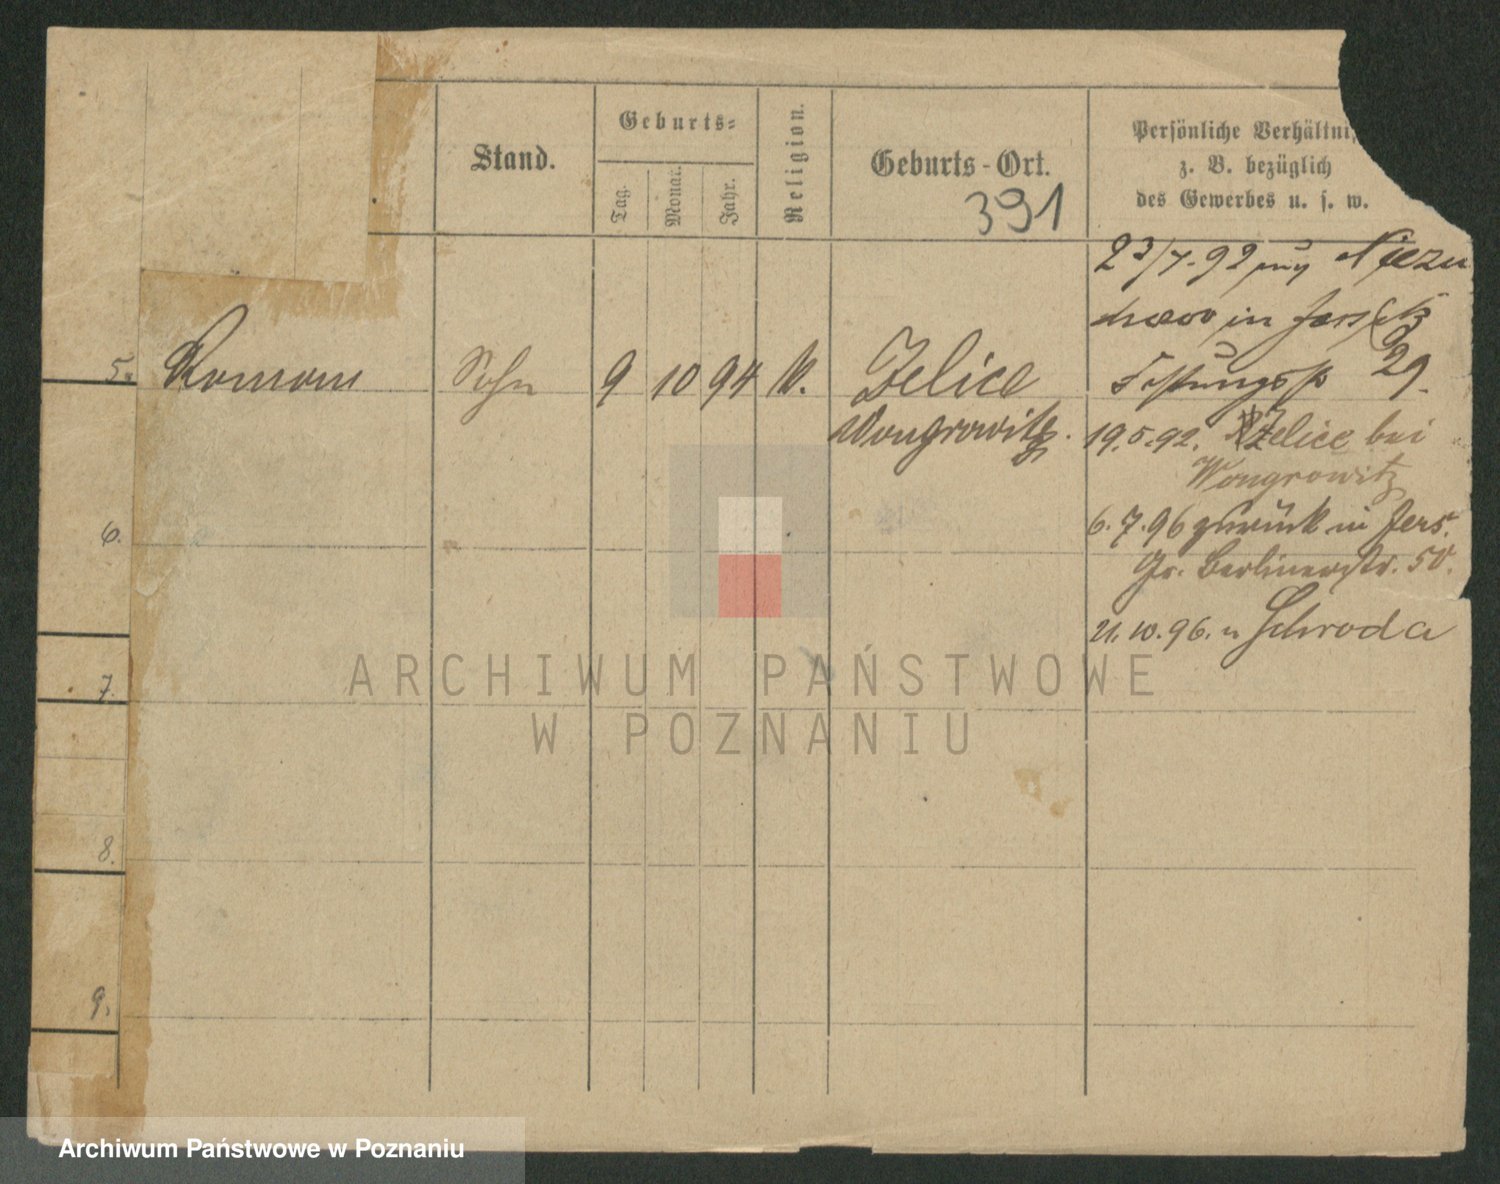 Stand.
Geburts=
Tag.
Monat.
Jahr.
Religion.
Geburts-Ort.
391
Persönliche Verhältni
z. B. bezüglich
des Gewerbes u. s. w.
23/7.92 Niezu
in Jersitz
5. Roman Sohn 9 10 94 k. Zelice
29.
Wongrowitz.
19.5.92. Zelice bei
Wongrowitz
6.
6.7.96 zurück in Jers.
Gr. Berlinerstr. 50.
21.10.96. n Schroda
7.
8.
9.
ARCHIWUM PAŃSTWOWE
W POZNANIU
Archiwum Państwowe w Poznaniu